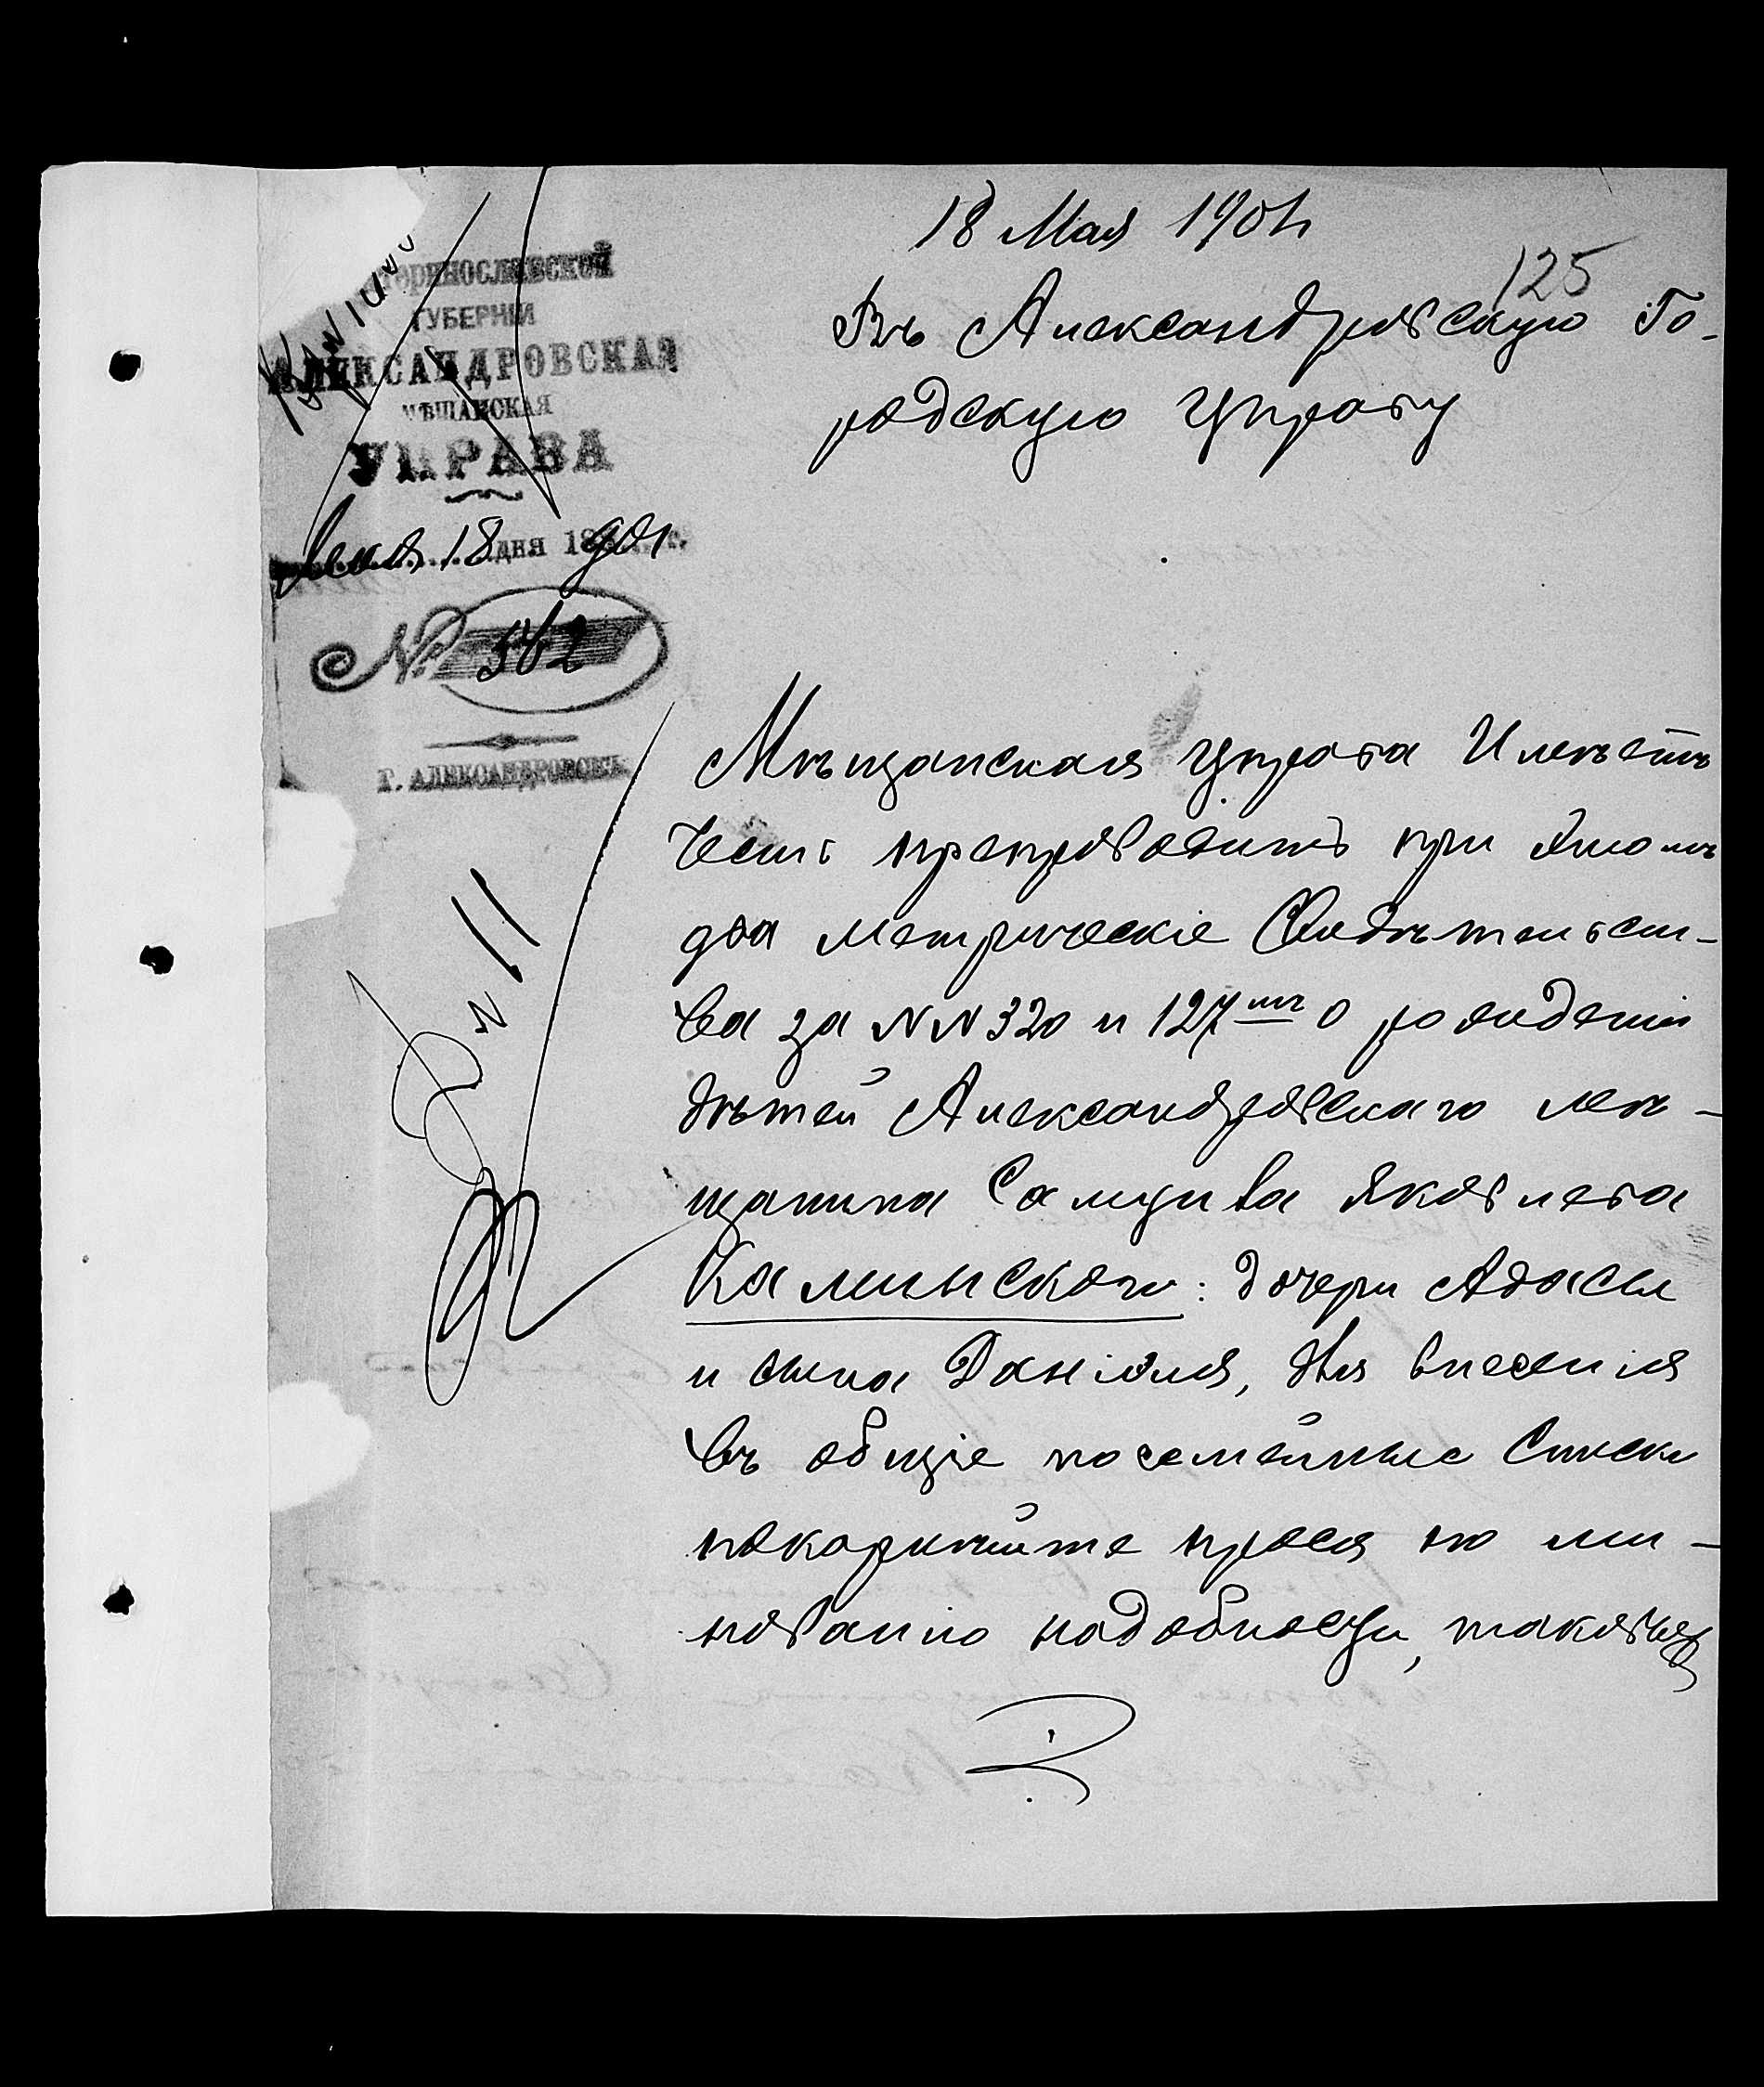 18 Мая 1901
125
Въ Александровскую Го-
родскую Управу
теринославской
ГУБЕРНІИ
АЛЕКСАНДРОВСКАЯ
МѢЩАНСКАЯ
УПРАВА
Мая 18 дня 1901 г.
№ 562
Г. АЛЕКСАНДРОВСКЪ
Мѣщанская Управа Имѣетъ
честь препроводить при этомъ
два метрическіе Свидѣтельст-
ва за NN 320 и 127 о рожденіи
дѣтей Александровскаго мѣ-
щанина Самуила Яковлева
Каминскаго: дочери Адасы
и сына Даніэля, для внесенія
въ общіе посемейные Списки
покорнѣйше прося по ми-
нованію надобности, таковыя
N 11